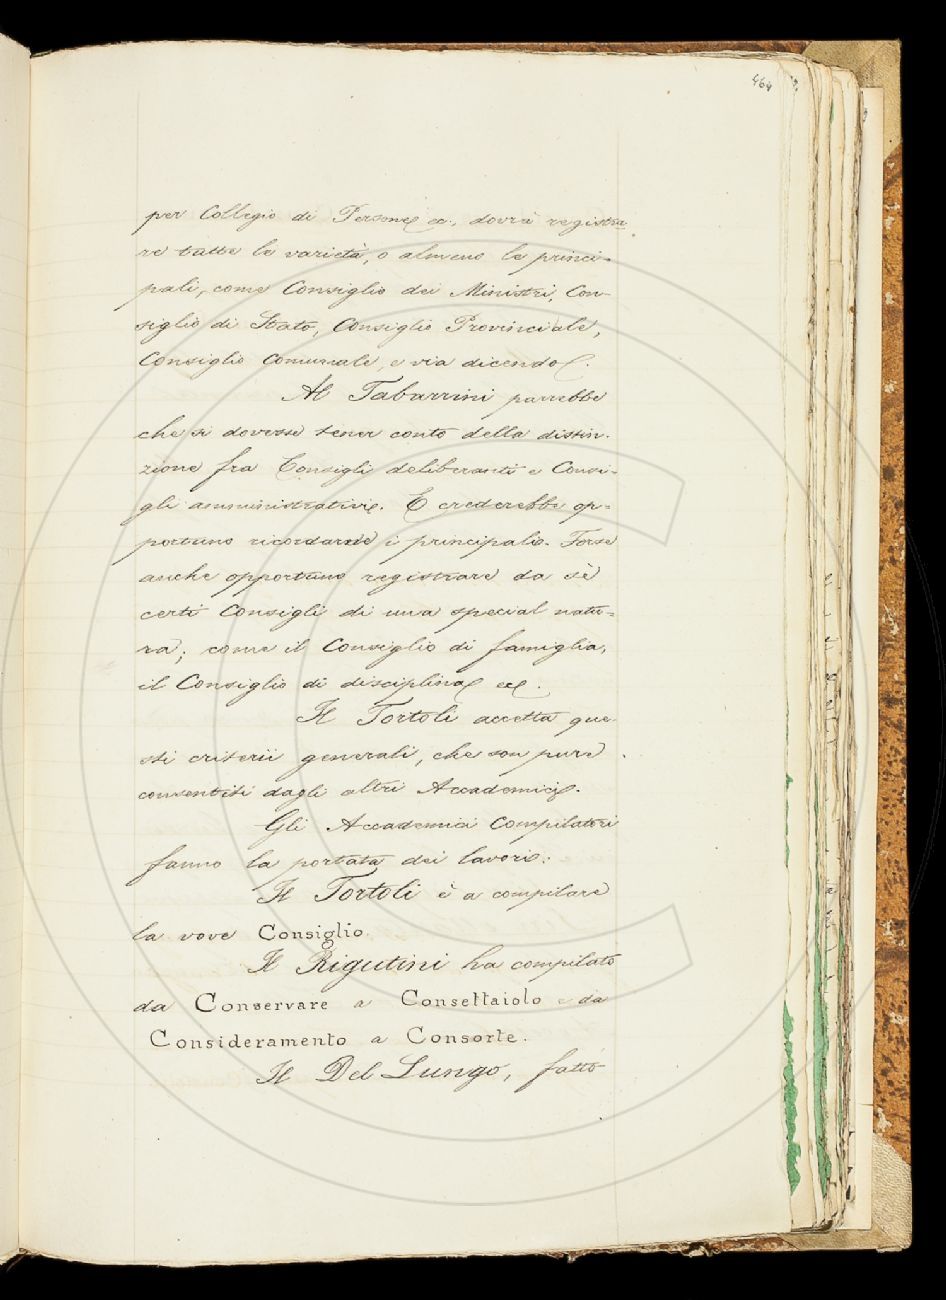 464
per Collegio di Persone ec. dovrà registra
re tutte le varietà, o almeno le princi-
pali, come Consiglio dei Ministri, Con-
siglio di Stato, Consiglio Provinciale,
Consiglio Comunale, e via dicendo.
Al Tabarrini parrebbe
che si dovesse tener conto della distin-
zione fra Consigli deliberanti e Consi-
gli amministrativi. E crederebbe op-
portuno ricordarne i principali. Forse
anche opportuno registrare da sè
certi Consigli di una special natu-
ra; come il Consiglio di famiglia,
il Consiglio di disciplina ec.
Il Tortoli accetta que-
sti criterii generali, che son pure
consentiti dagli altri Accademici.
Gli Accademici Compilatori
fanno la portata dei lavori:
Il Tortoli è a compilare
la voce Consiglio.
Il Rigutini ha compilato
da Conservare a Consettaiolo e da
Consideramento a Consorte.
Il Del Lungo, fatto